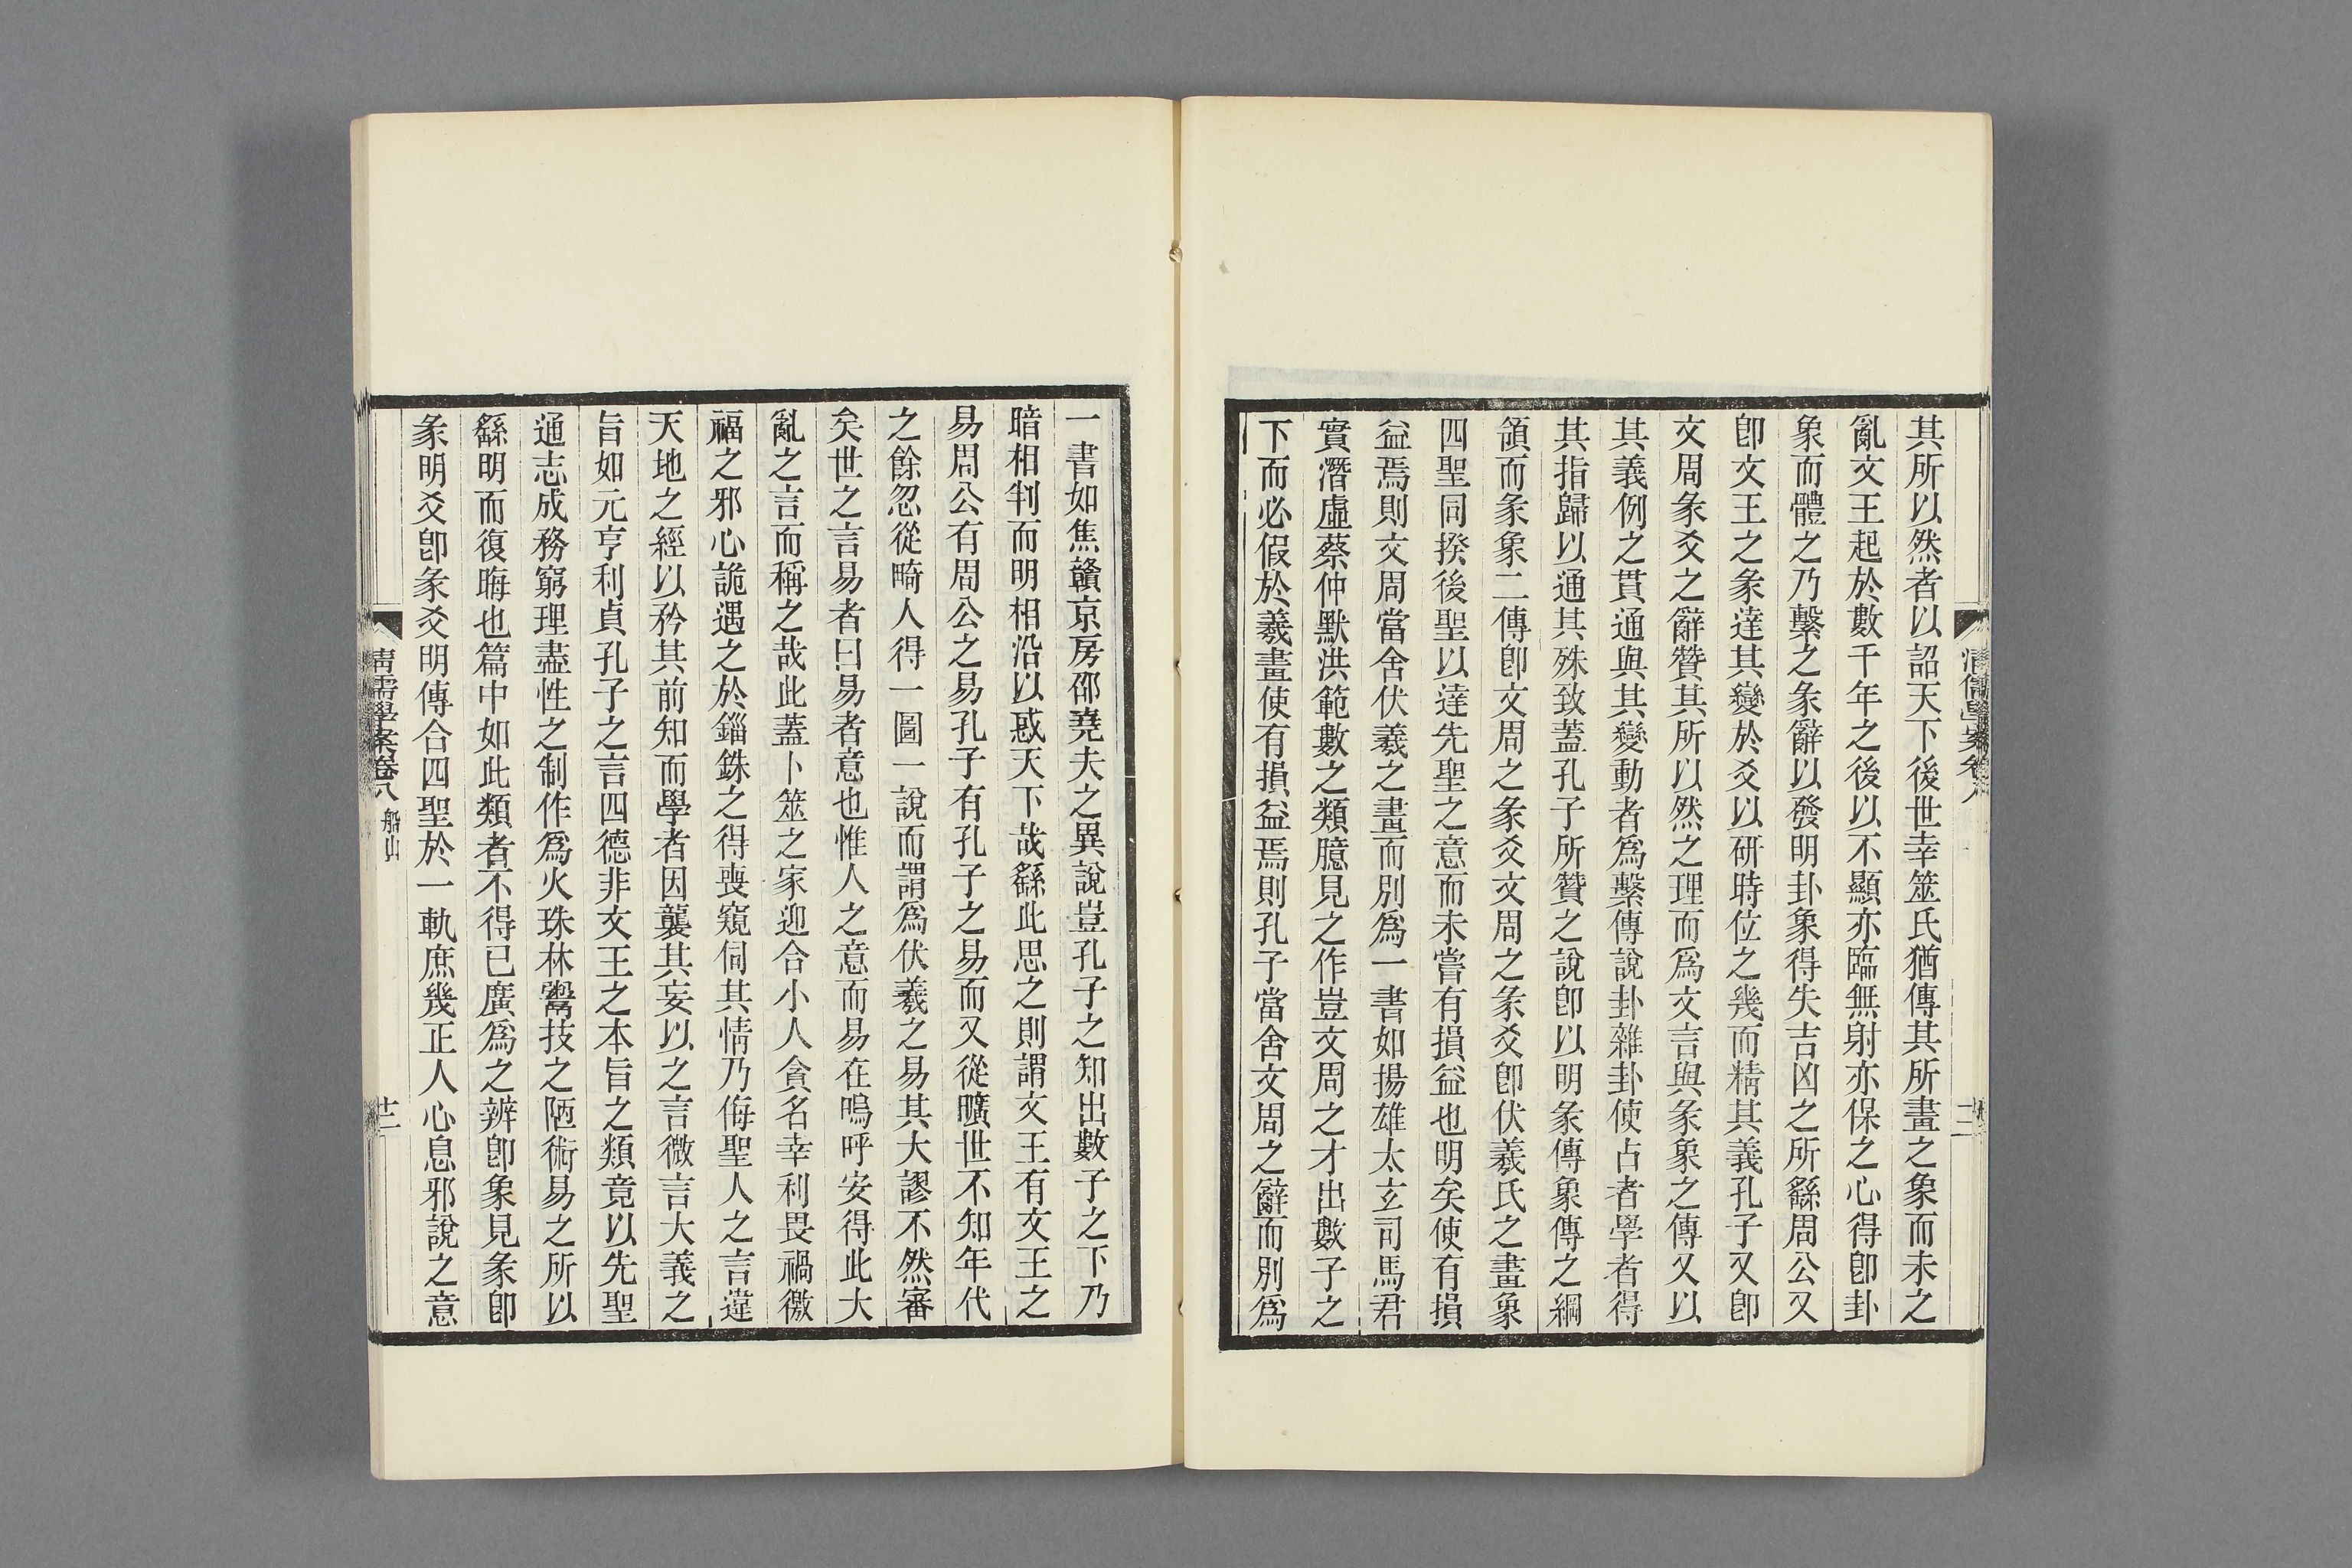 其所以然者以詔天下後世幸筮氏猶傳其所畫之象而未之
亂文王起於數千年之後以不顯亦臨無射亦保之心得卽卦
象而體之乃繫之彖辭以發明卦象得失吉凶之所繇周公又
卽文王之彖達其變於爻以硏時位之幾而精其義孔子又卽
文周彖爻之辭贊其所以然之理而爲文言與彖象之傳又以
其義例之貫通與其變動者爲繫傳說卦雜卦使占者學者得
其指歸以通其殊致蓋孔子所贊之說卽以明彖傳象傳之綱
領而彖象二傳卽文周之彖爻文周之彖爻卽伏羲氏之畫象
四聖同揆後聖以達先聖之意而未嘗有損益也明矣使有損
益焉則文周當舍伏羲之畫而別爲一書如揚雄太玄司馬君
實潛虛蔡仲默洪範數之類臆見之作豈文周之才出數子之
下而必假於羲畫使有損益焉則孔子當舍文周之辭而別爲
一書如焦贛京房邵堯夫之異說豈孔子之知出數子之下乃
暗相判而明相沿以惑天下哉繇此思之則謂文王有文王之
易周公有周公之易孔子有孔子之易而又從曠世不知年代
之餘忽從畸人得一圖一說而謂爲伏羲之易其大謬不然審
矣世之言易者曰易者意也惟人之意而易在嗚呼安得此大
亂之言而稱之哉此蓋卜筮之家迎合小人貪名幸利畏禍徼
福之邪心詭遇之於錙銖之得喪窺伺其情乃侮聖人之言違
天地之經以矜其前知而學者因襲其妄以之言微言大義之
旨如元亨利貞孔子之言四德非文王之本旨之類竟以先聖
通志成務窮理盡性之制作爲火珠林鬻技之陋術易之所以
繇明而復晦也篇中如此類者不得已廣爲之辨卽象見彖卽
彖明爻卽彖爻明傳合四聖於一軌庶幾正人心息邪說之意
清儒學案卷八 船山